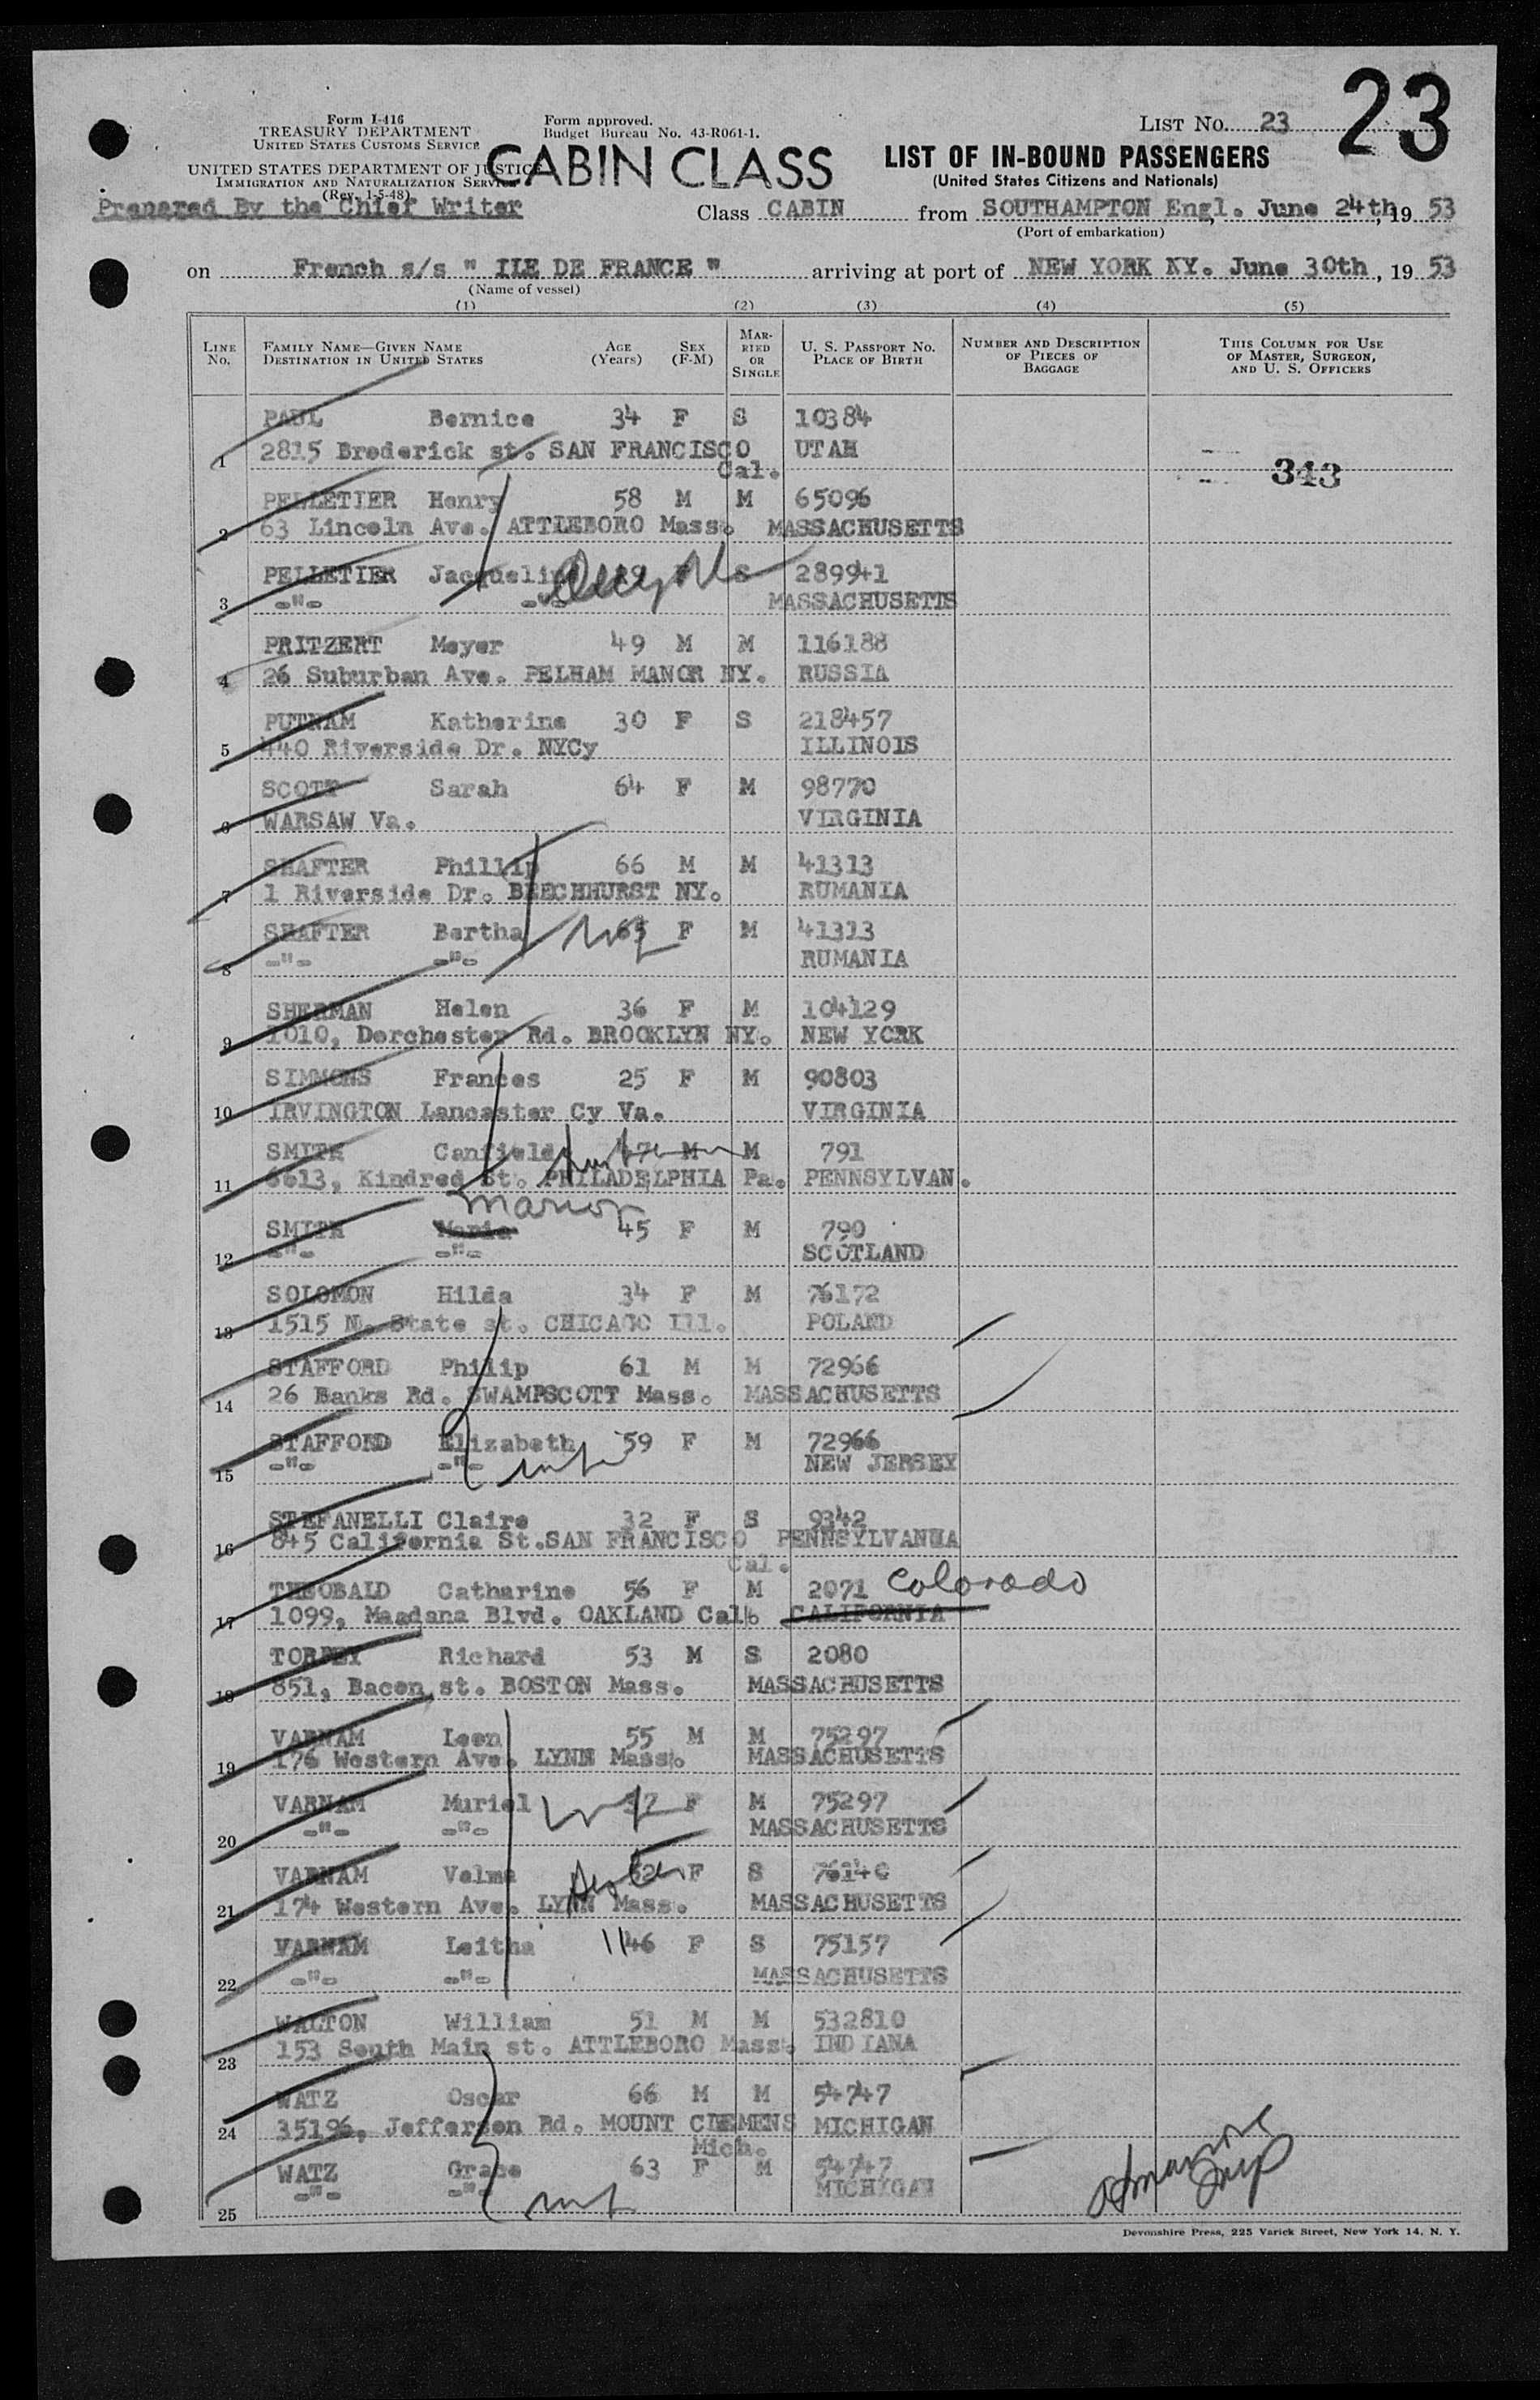 23
Form I-416
TREASURY DEPARTMENT
UNITED STATES CUSTOMS SERVICE
UNITED STATES DEPARTMENT OF JUSTICE
IMMIGRATION AND NATURALIZATION SERVICE
(Rev. 1-5-48)
Prepared By the Chief Writer
Form approved.
Budget Bureau No. 43-R061-1.
CABIN CLASS
LIST NO. 23
LIST OF IN-BOUND PASSENGERS
(United States Citizens and Nationals)
Class CABIN from SOUTHAMPTON Engl. June 24th, 19 53
(Port of embarkation)
on French s/s " ILE DE FRANCE " arriving at port of NEW YORK NY. June 30th, 19 53
(Name of vessel)
(1) (2) (3) (4) (5)
LINE NO. FAMILY NAME—GIVEN NAME DESTINATION IN UNITED STATES AGE (Years) SEX (F-M) MARRIED OR SINGLE U. S. PASSPORT NO. PLACE OF BIRTH NUMBER AND DESCRIPTION OF PIECES OF BAGGAGE THIS COLUMN FOR USE OF MASTER, SURGEON, AND U. S. OFFICERS
PAUL Bernice 34 F S 10384
1 2815 Brederick st. SAN FRANCISCO Cal. UTAH
343
PELLETIER Henry 58 M M 65096
2 63 Lincoln Ave. ATTLEBORO Mass. MASSACHUSETTS
PELLETIER Jacqueline S 289941
3 -"- -"- MASSACHUSETTS
PRITZERT Meyer 49 M M 116188
4 26 Suburban Ave. PELHAM MANOR NY. RUSSIA
PUTNAM Katherine 30 F S 218457
5 440 Riverside Dr. NYCy ILLINOIS
SCOTT Sarah 64 F M 98770
6 WARSAW Va. VIRGINIA
SHAFTER Phillip 66 M M 41313
7 1 Riverside Dr. BEECHHURST NY. RUMANIA
SHAFTER Bertha 65 F M 41313
8 -"- -"- RUMANIA
SHERMAN Helen 36 F M 104129
9 1010, Dorchester Rd. BROOKLYN NY. NEW YORK
SIMMONS Frances 25 F M 90803
10 IRVINGTON Lancaster Cy Va. VIRGINIA
SMITH Canfield M M 791
11 6613, Kindred St. PHILADELPHIA Pa. PENNSYLVAN.
Marion
SMITH Maria 45 F M 790
12 -"- -"- SCOTLAND
SOLOMON Hilda 34 F M 76172
13 1515 N. State st. CHICAGO Ill. POLAND
STAFFORD Philip 61 M M 72966
14 26 Banks Rd. SWAMPSCOTT Mass. MASSACHUSETTS
STAFFORD Elizabeth 59 F M 72966
15 -"- -"- NEW JERSEY
STEFANELLI Claire 32 F S 9342
16 845 California St.SAN FRANCISCO Cal. PENNSYLVANIA
THEOBALD Catharine 56 F M 2071 Colorado
17 1099, Magdana Blvd. OAKLAND Cal. CALIFORNIA
TORPEY Richard 53 M S 2080
18 851, Bacon st. BOSTON Mass. MASSACHUSETTS
VARNAM Leon 55 M M 75297
19 176 Western Ave. LYNN Mass. MASSACHUSETTS
VARNAM Muriel F M 75297
20 -"- -"- MASSACHUSETTS
VARNAM Velma F S
21 174 Western Ave. LYNN Mass. MASSACHUSETTS
VARNAM Leitha 46 F S 75157
22 -"- -"- MASSACHUSETTS
WALTON William 51 M M 532810
23 153 South Main st. ATTLEBORO Mass. INDIANA
WATZ Oscar 66 M M 54747
24 35196, Jefferson Rd. MOUNT CLEMENS Mich. MICHIGAN
WATZ Grace 63 F M 54747
25 -"- -"- MICHIGAN
Devonshire Press, 225 Varick Street, New York 14, N. Y.